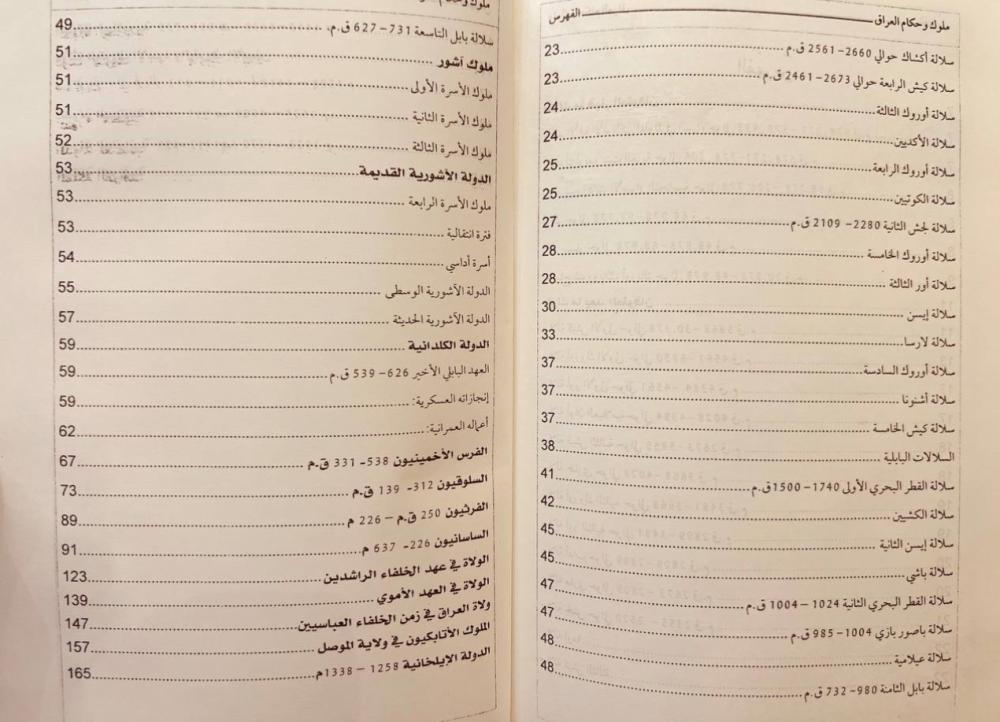 ملوك وحكام العراق الفهرس
سلالة أكشاك حوالي 2660- 2561 ق.م 23
سلالة كيش الرابعة حوالي 2673- 2461 ق.م 23
سلالة أوروك الثالثة 24
سلالة الأكديين 24
سلالة أوروك الرابعة 25
سلالة الكوتيين 25
سلالة لجش الثانية 2280- 2109 ق.م 27
سلالة أوروك الخامسة 28
سلالة أور الثالثة 28
سلالة إيسن 30
سلالة لارسا 33
سلالة أوروك السادسة 37
سلالة أشنونا 37
سلالة كيش الخامسة 37
السلالات البابلية 38
سلالة القطر البحري الأولى 1740- 1500ق.م 41
سلالة الكشيين 42
سلالة إيسن الثانية 45
سلالة باشي 45
سلالة القطر البحري الثانية 1024 - 1004 ق.م 47
سلالة باصور بازي 1004- 985 ق.م 47
سلالة عيلامية 48
سلالة بابل الثامنة 980- 732 ق.م 48
ملوك وحكام
سلالة بابل التاسعة 731- 627 ق.م. 49
ملوك آشور 51
ملوك الأسرة الأولى 51
ملوك الأسرة الثانية 51
ملوك الأسرة الثالثة 52
الدولة الآشورية القديمة 53
ملوك الأسرة الرابعة 53
فترة انتقالية 53
أسرة أداسي 54
الدولة الآشورية الوسطى 55
الدولة الآشورية الحديثة 57
الدولة الكلدانية 59
العهد البابلي الأخير 626- 539 ق.م 59
إنجازاته العسكرية: 59
أعماله العمرانية: 62
الفرس الأخمينيون 538- 331 ق.م 67
السلوقيون 312- 139 ق.م 73
الفرثيون 250 ق.م – 226 م 89
الساسانيون 226- 637 م 91
الولاة في عهد الخلفاء الراشدين 123
الولاة في العهد الأموي 139
ولاة العراق في زمن الخلفاء العباسيين 147
الملوك الأتابكيون في ولاية الموصل 157
الدولة الإيلخانية 1258 – 1338م 165